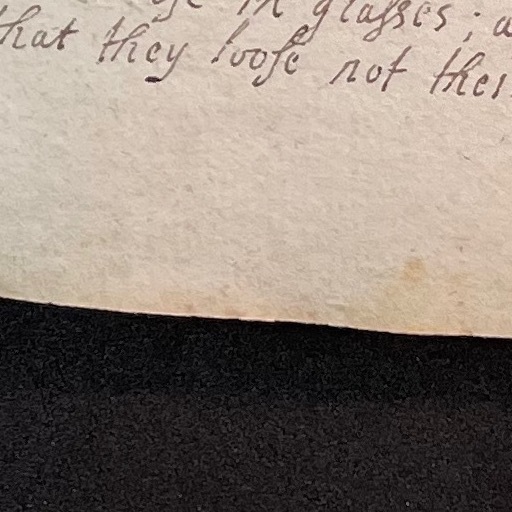 in glaſses; a
that they looſe not thei